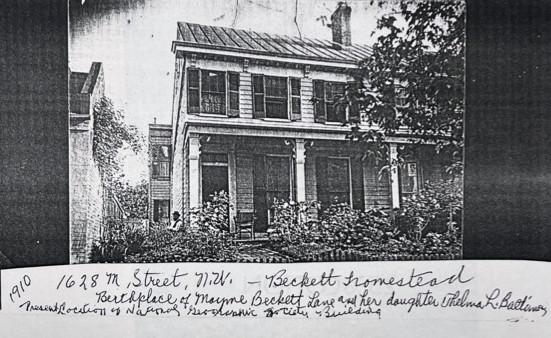 1910
1628 M. Street, N.W. - Beckett Homestead
Birthplace of Mayme Beckett Lane and her daughter Thelma L.
Present Location of National Geographic Society Building